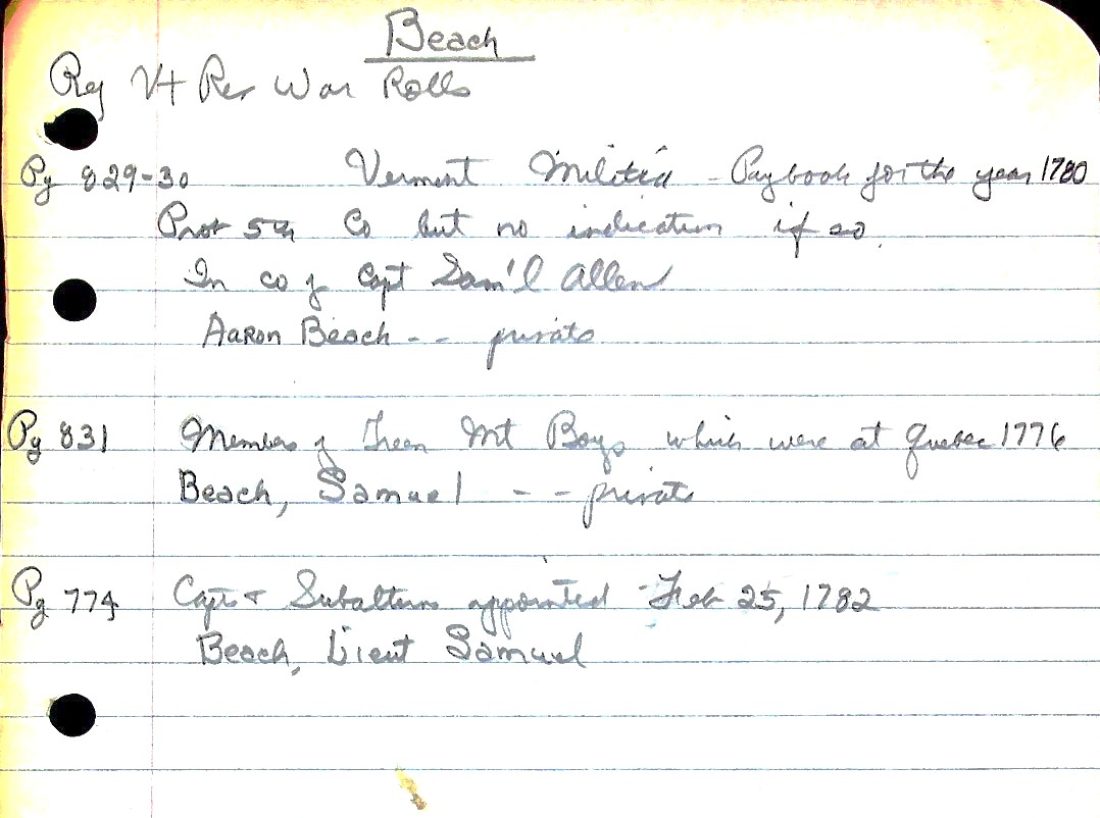 Beach
Reg Vt Rev War Rolls
Pg 829-30 Vermont Militia - Paybook for the year 1780
Prob 5th Co but no indication if so
In co of Capt Sam'l Allen
Aaron Beach - - private
Pg 831 Members of Green Mt Boys which were at Quebec 1776
Beach, Samuel - - private
Pg 774 Capts & Subalterns appointed - Feb 25, 1782
Beach, Lieut Samuel